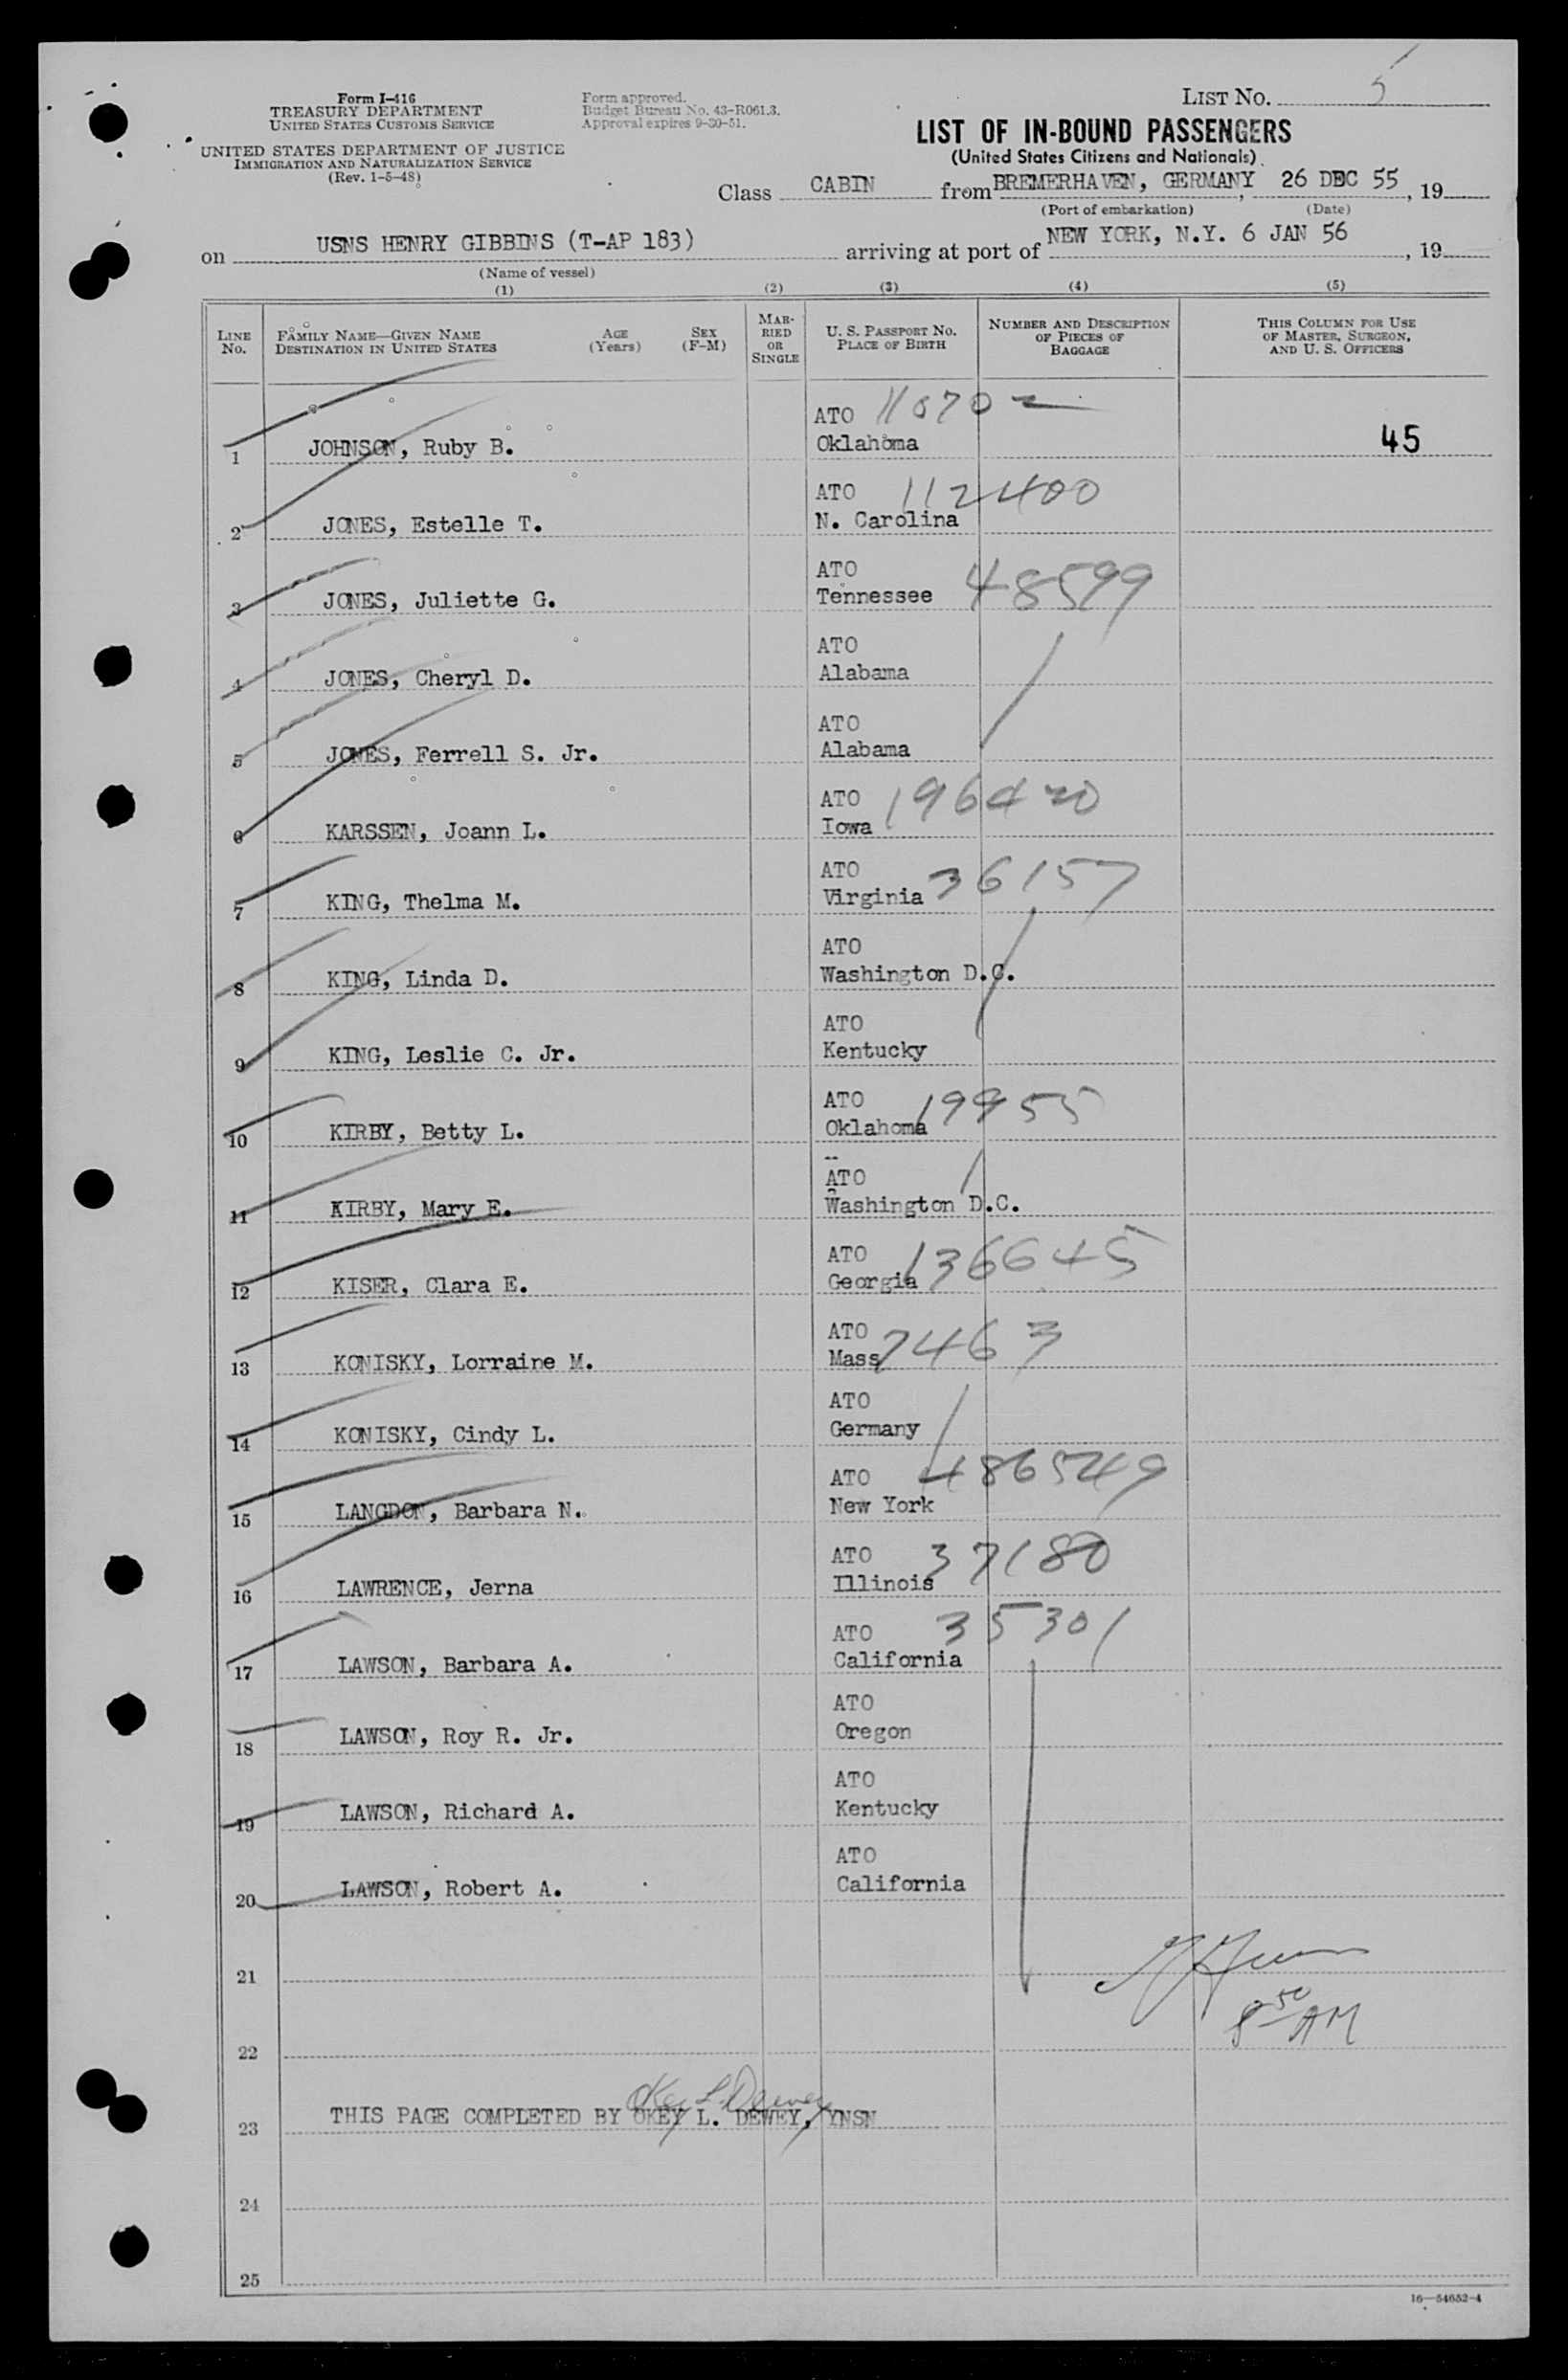 Form I-416
TREASURY DEPARTMENT
UNITED STATES CUSTOMS SERVICE
UNITED STATES DEPARTMENT OF JUSTICE
IMMIGRATION AND NATURALIZATION SERVICE
(Rev. 1-5-48)
Form approved.
Budget Bureau No. 43-R061.3.
Approval expires 9-30-51.
LIST NO. 5
LIST OF IN-BOUND PASSENGERS
(United States Citizens and Nationals)
Class CABIN from BREMERHAVEN, GERMANY, 26 DEC 55, 19
(Port of embarkation) (Date)
on USNS HENRY GIBBINS (T-AP 183) arriving at port of NEW YORK, N.Y. 6 JAN 56, 19
(Name of vessel)
(1) (2) (3) (4) (5)
LINE NO.
FAMILY NAME—GIVEN NAME
DESTINATION IN UNITED STATES
AGE (Years)
SEX (F-M)
MARRIED OR SINGLE
U. S. PASSPORT NO.
PLACE OF BIRTH
NUMBER AND DESCRIPTION OF PIECES OF BAGGAGE
THIS COLUMN FOR USE OF MASTER, SURGEON, AND U. S. OFFICERS
ATO
1 JOHNSON, Ruby B. Oklahoma 45
ATO 112400
2 JONES, Estelle T. N. Carolina
ATO 48599
3 JONES, Juliette G. Tennessee
ATO
4 JONES, Cheryl D. Alabama
ATO
5 JONES, Ferrell S. Jr. Alabama
ATO 196420
6 KARSSEN, Joann L. Iowa
ATO 36157
7 KING, Thelma M. Virginia
ATO
8 KING, Linda D. Washington D.C.
ATO
9 KING, Leslie C. Jr. Kentucky
ATO 19955
10 KIRBY, Betty L. Oklahoma
ATO
11 KIRBY, Mary E. Washington D.C.
ATO 136645
12 KISER, Clara E. Georgia
ATO 7463
13 KONISKY, Lorraine M. Mass
ATO
14 KONISKY, Cindy L. Germany
ATO 486549
15 LANGDON, Barbara N. New York
ATO 37180
16 LAWRENCE, Jerna Illinois
ATO 35301
17 LAWSON, Barbara A. California
ATO
18 LAWSON, Roy R. Jr. Oregon
ATO
19 LAWSON, Richard A. Kentucky
ATO
20 LAWSON, Robert A. California
21
8 50 AM
22
Okey L. Dewey
23 THIS PAGE COMPLETED BY OKEY L. DEWEY, YNSN
24
25
16—54652-4